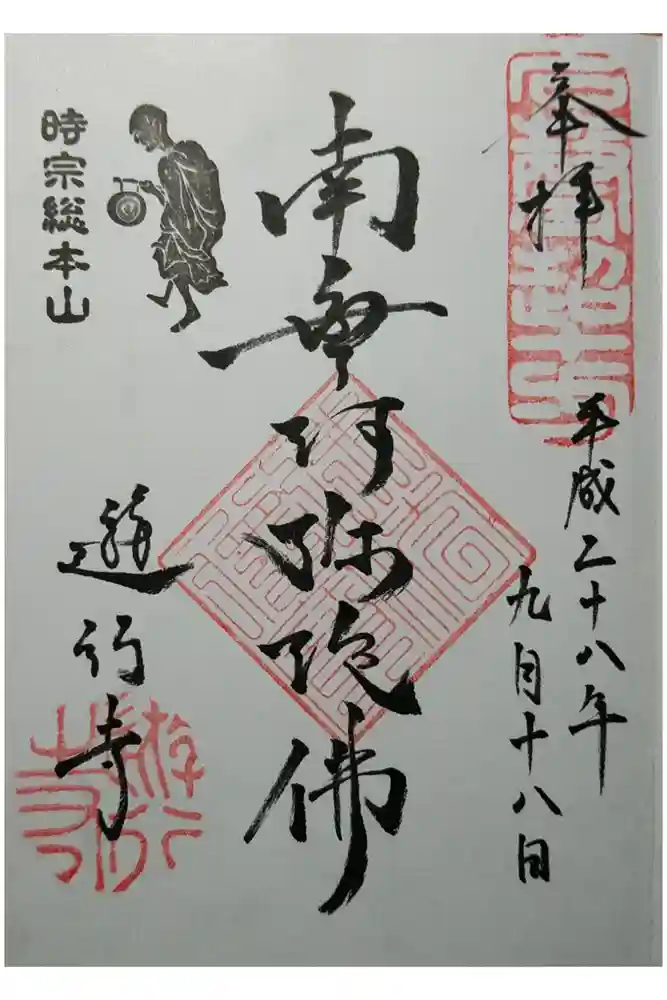 奉拝
平成二十八年
九月十八日
南無阿弥陀佛
時宗総本山
遊行寺